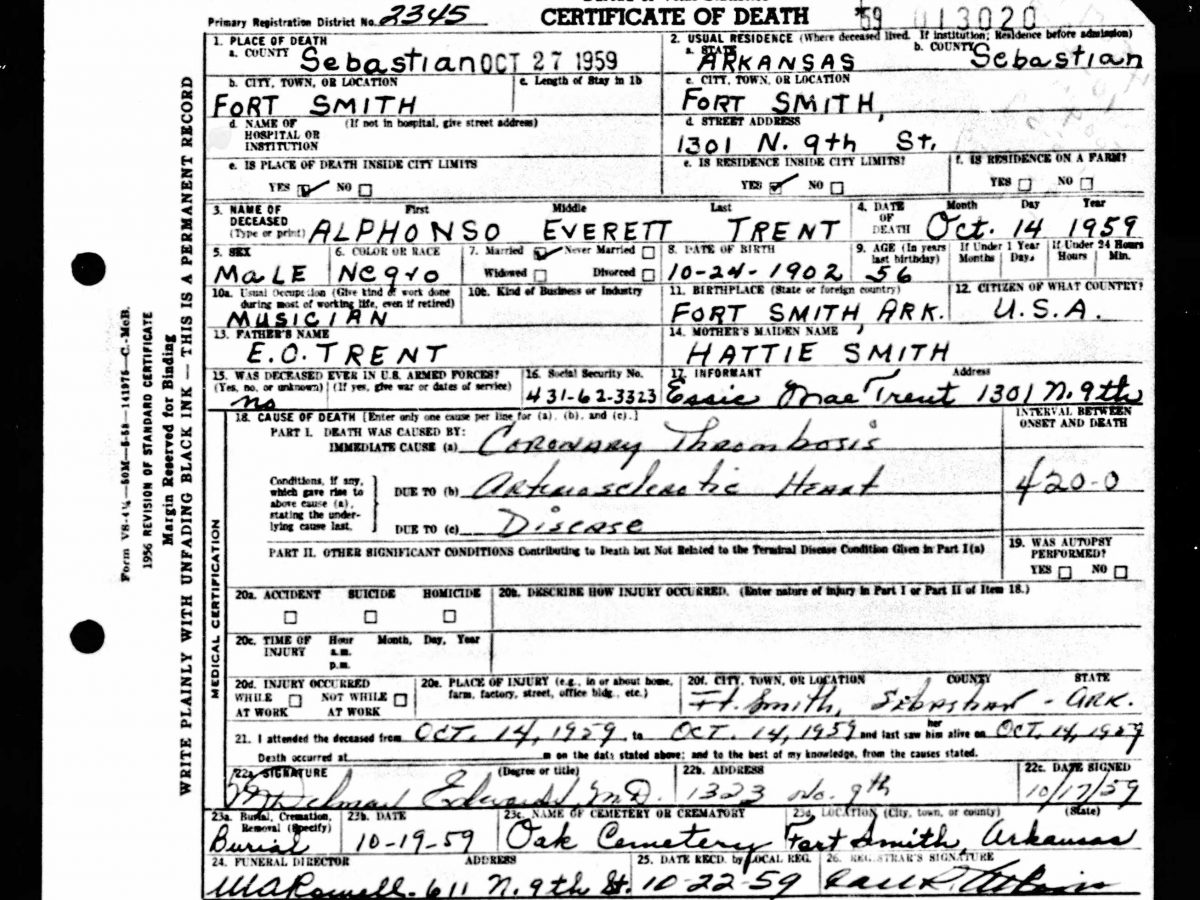 Primary Registration District No. 2345 CERTIFICATE OF DEATH 59 013020
1. PLACE OF DEATH
a. COUNTY Sebastian OCT 27 1959
2. USUAL RESIDENCE (Where deceased lived. If institution; Residence before admission)
a. STATE ARKANSAS b. COUNTY Sebastian
b. CITY, TOWN, OR LOCATION c. Length of Stay in 1b
FORT SMITH
c. CITY, TOWN, OR LOCATION
FORT SMITH,
d. NAME OF (If not in hospital, give street address)
HOSPITAL OR
INSTITUTION
d. STREET ADDRESS
1301 N. 9th St.
e. IS PLACE OF DEATH INSIDE CITY LIMITS
YES NO
e. IS RESIDENCE INSIDE CITY LIMITS?
YES NO
f. IS RESIDENCE ON A FARM?
YES NO
3. NAME OF First Middle Last
DECEASED
(Type or print) ALPHONSO EVERETT TRENT
4. DATE Month Day Year
OF
DEATH Oct. 14 1959
5. SEX
MaLE
6. COLOR OR RACE
Negro
7. Married Never Married
Widowed Divorced
8. DATE OF BIRTH
10-24-1902
9. AGE (In years last birthday)
56
If Under 1 Year
Months Days
If Under 24 Hours
Hours Min.
10a. Usual Occupation (Give kind of work done
during most of working life, even if retired)
MUSICIAN
10b. Kind of Business or Industry
11. BIRTHPLACE (State or foreign country)
FORT SMITH ARK.
12. CITIZEN OF WHAT COUNTRY?
U.S.A.
13. FATHER'S NAME
E.O. TRENT
14. MOTHER'S MAIDEN NAME
HATTIE SMITH
15. WAS DECEASED EVER IN U.S. ARMED FORCES?
(Yes, no, or unknown) (If yes, give war or dates of service)
no
16. Social Security No.
431-62-3323
17. INFORMANT Address
Essie Mae Trent 1301 N. 9th
18. CAUSE OF DEATH [Enter only one cause per line for (a), (b), and (c).]
INTERVAL BETWEEN
ONSET AND DEATH
PART I. DEATH WAS CAUSED BY:
IMMEDIATE CAUSE (a) Coronary Thrombosis
Conditions, if any,
which gave rise to
above cause (a),
stating the under-
lying cause last.
DUE TO (b) Arteriosclerotic Heart
420-0
DUE TO (c) Disease
PART II. OTHER SIGNIFICANT CONDITIONS Contributing to Death but Not Related to the Terminal Disease Condition Given in Part I(a)
19. WAS AUTOPSY
PERFORMED?
YES NO
20a. ACCIDENT SUICIDE HOMICIDE
20b. DESCRIBE HOW INJURY OCCURRED. (Enter nature of injury in Part I or Part II of Item 18.)
20c. TIME OF Hour Month, Day, Year
INJURY a.m.
p.m.
20d. INJURY OCCURRED
WHILE NOT WHILE
AT WORK AT WORK
20e. PLACE OF INJURY (e.g., in or about home,
farm, factory, street, office bldg., etc.)
20f. CITY, TOWN, OR LOCATION COUNTY STATE
Ft. Smith, Sebastian - ARK.
21. I attended the deceased from OCT. 14, 1959 to OCT. 14, 1959 and last saw her him alive on OCT. 14, 1959
Death occurred at m on the date stated above; and to the best of my knowledge, from the causes stated.
22a. SIGNATURE (Degree or title)
Edwards M.D.
22b. ADDRESS
1323 No. 9th
22c. DATE SIGNED
10/17/59
23a. Burial, Cremation,
Removal (Specify)
Burial
23b. DATE
10-19-59
23c. NAME OF CEMETERY OR CREMATORY
Oak Cemetery
23d. LOCATION (City, town, or county) (State)
Fort Smith, Arkansas
24. FUNERAL DIRECTOR ADDRESS
Rowell - 611 N. 9th St.
25. DATE RECD. by LOCAL REG.
10-22-59
26. REGISTRAR'S SIGNATURE
MEDICAL CERTIFICATION
WRITE PLAINLY WITH UNFADING BLACK INK — THIS IS A PERMANENT RECORD
Margin Reserved for Binding
1956 REVISION OF STANDARD CERTIFICATE
Form VS-4¼—50M—5-58—141975—C.-McB.